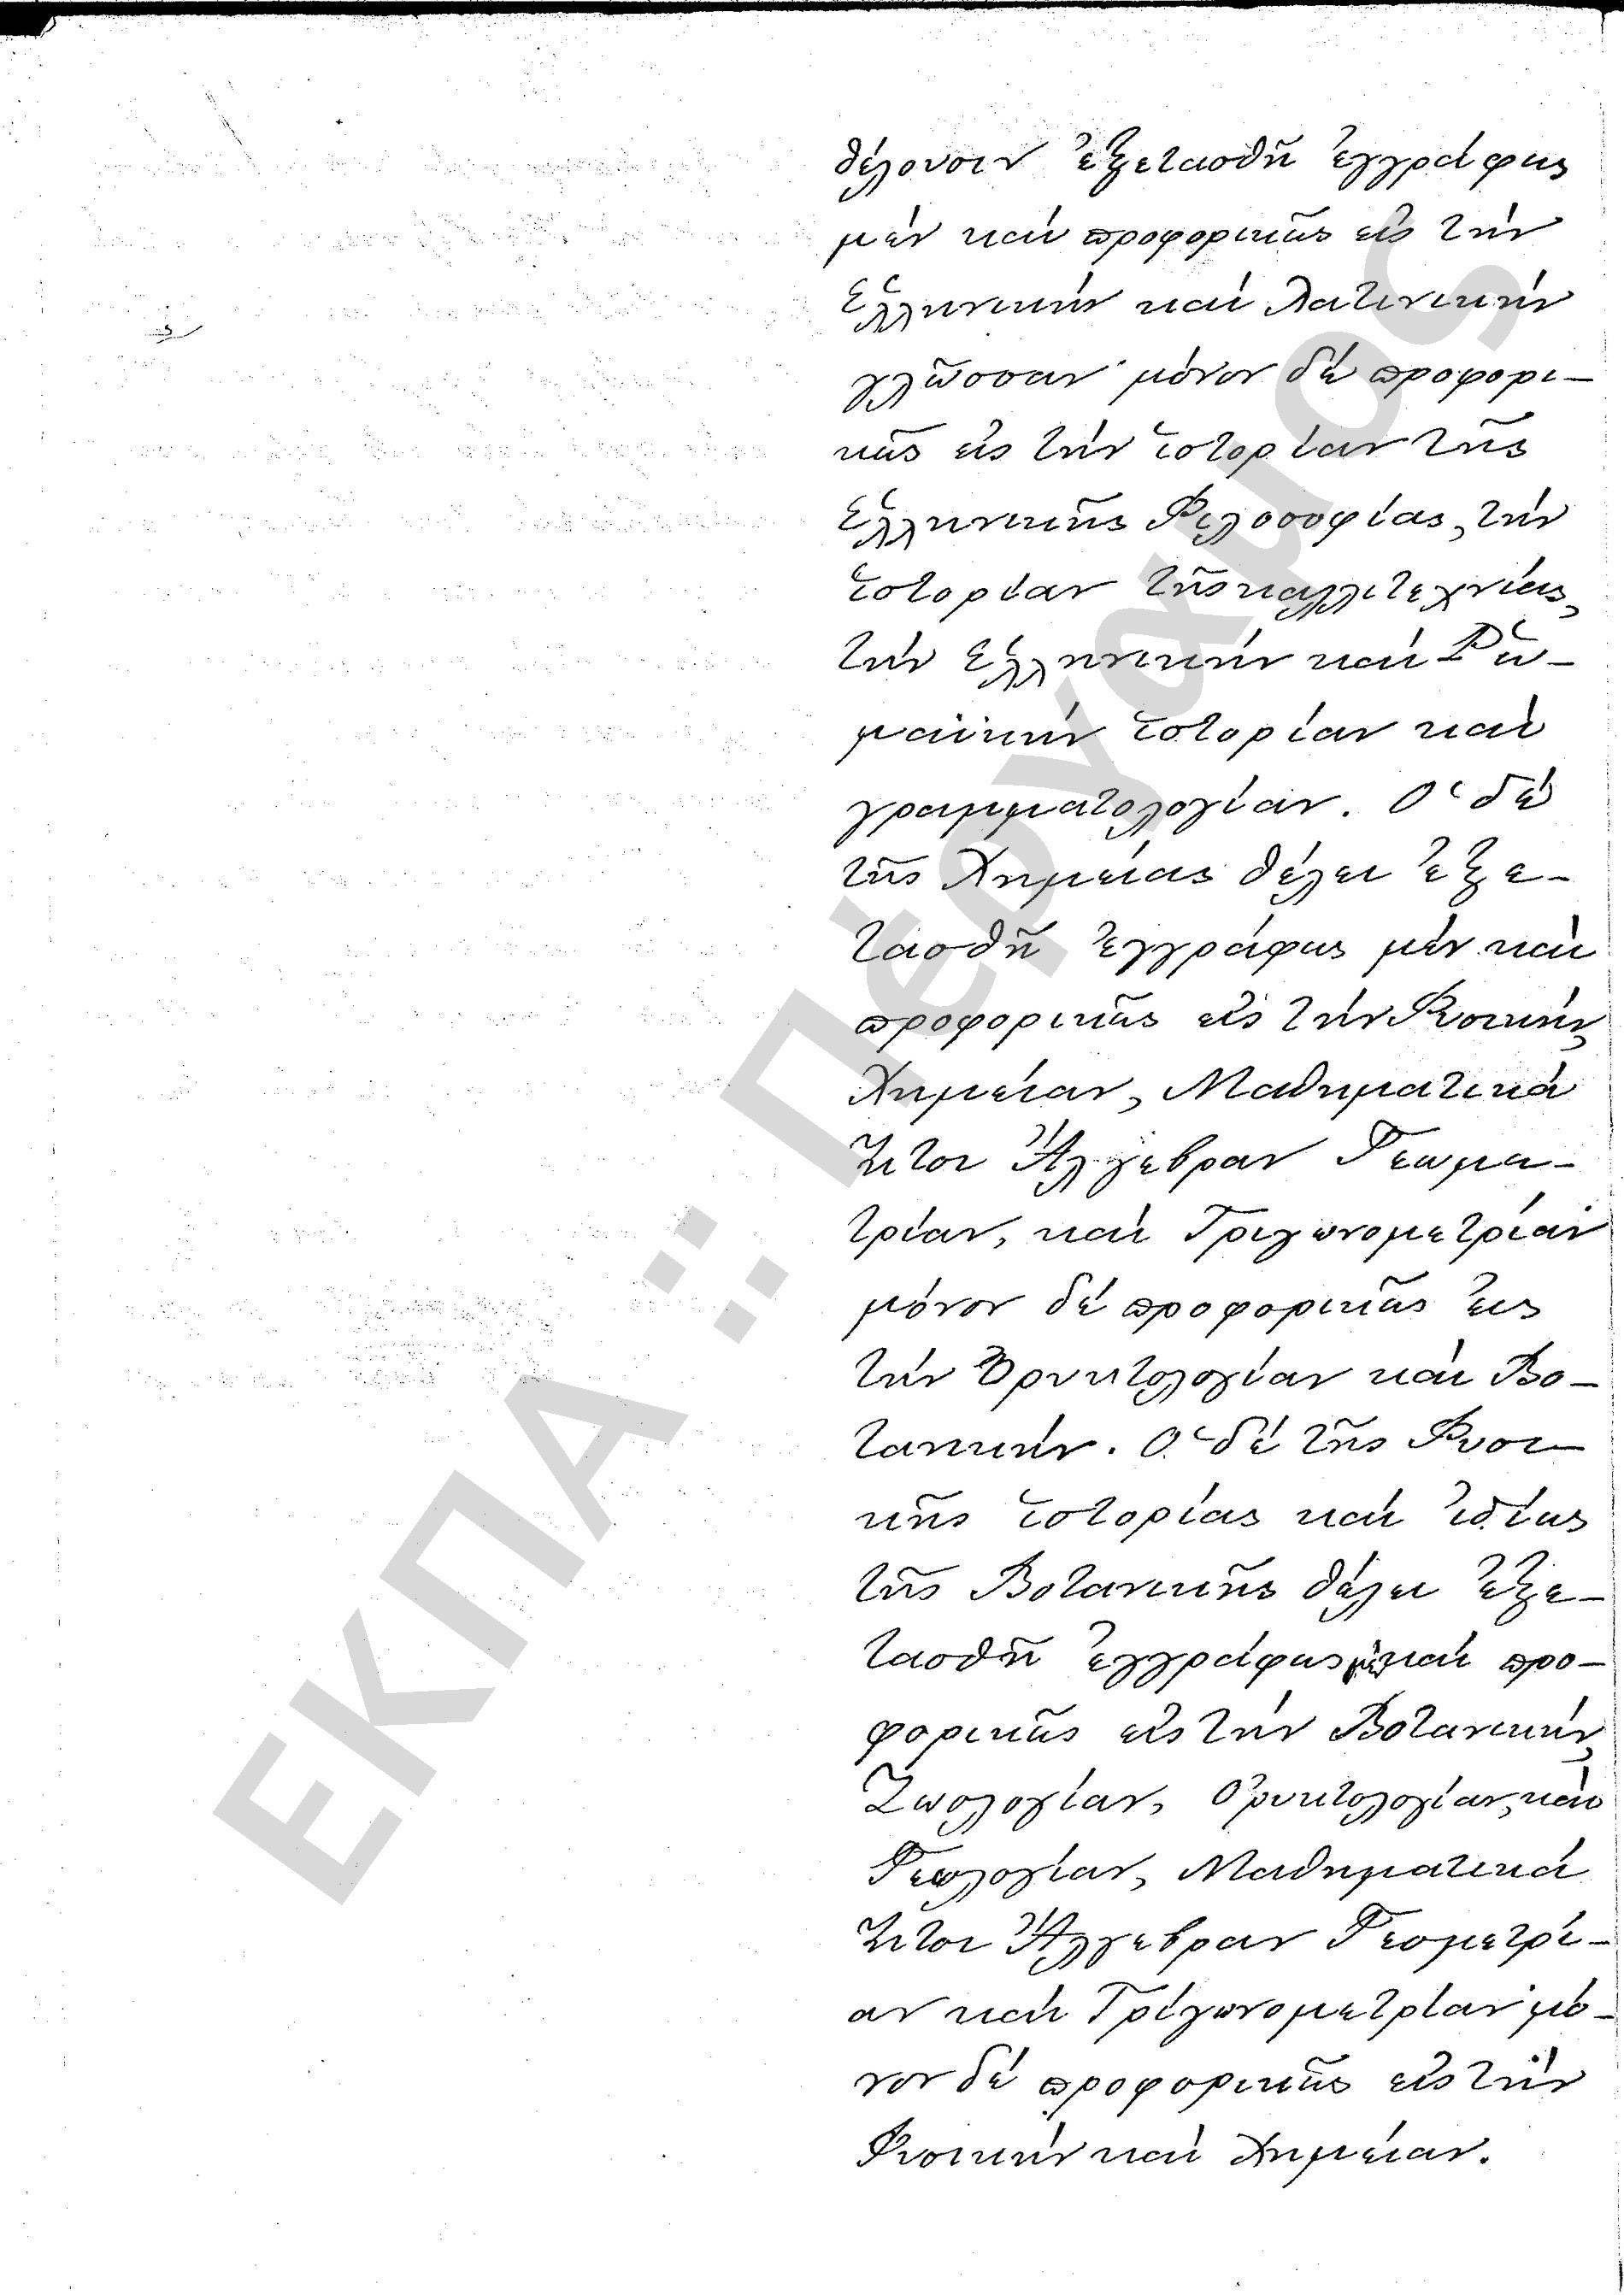 θέλουσιν ἐξετασθῆ ἐγγράφως
μέν καί προφορικῶς εἰς τήν
Ἑλληνικήν καί Λατινικήν
γλῶσσαν· μόνον δέ προφορι-
κῶς εἰς τήν ἱστορίαν τῆς
Ἑλληνικῆς Φιλοσοφίας, τήν
ἱστορίαν τῆς καλλιτεχνίας,
τήν Ἑλληνικήν καί Ῥω-
μαϊκήν ἱστορίαν καί
γραμματολογίαν. Ὁ δέ
τῆς Χημείας θέλει ἐξε-
τασθῆ ἐγγράφως μέν καί
προφορικῶς εἰς τήν Φυσικήν,
Χημείαν, Μαθηματικά
ἤτοι Ἄλγεβραν Γεωμε-
τρίαν, καί Τριγωνομετρίαν·
μόνον δέ προφορικῶς εἰς
τήν Ὀρυκτολογίαν καί Βο-
τανικήν. Ὁ δέ τῆς Φυσι-
κῆς ἱστορίας καί ἰδίως
τῆς Βοτανικῆς θέλει ἐξε-
τασθῆ ἐγγράφως μέν καί προ-
φορικῶς εἰς τήν Βοτανικήν,
Ζωολογίαν, Ὀρυκτολογίαν, καί
Γεωλογίαν, Μαθηματικά
ἤτοι Ἄλγεβραν Γεομετρί-
αν καί Τριγωνομετρίαν· μό-
νον δέ προφορικῶς εἰς τήν
Φυσικήν καί Χημείαν.
ΕΚΠΑ :: Πέργαμος